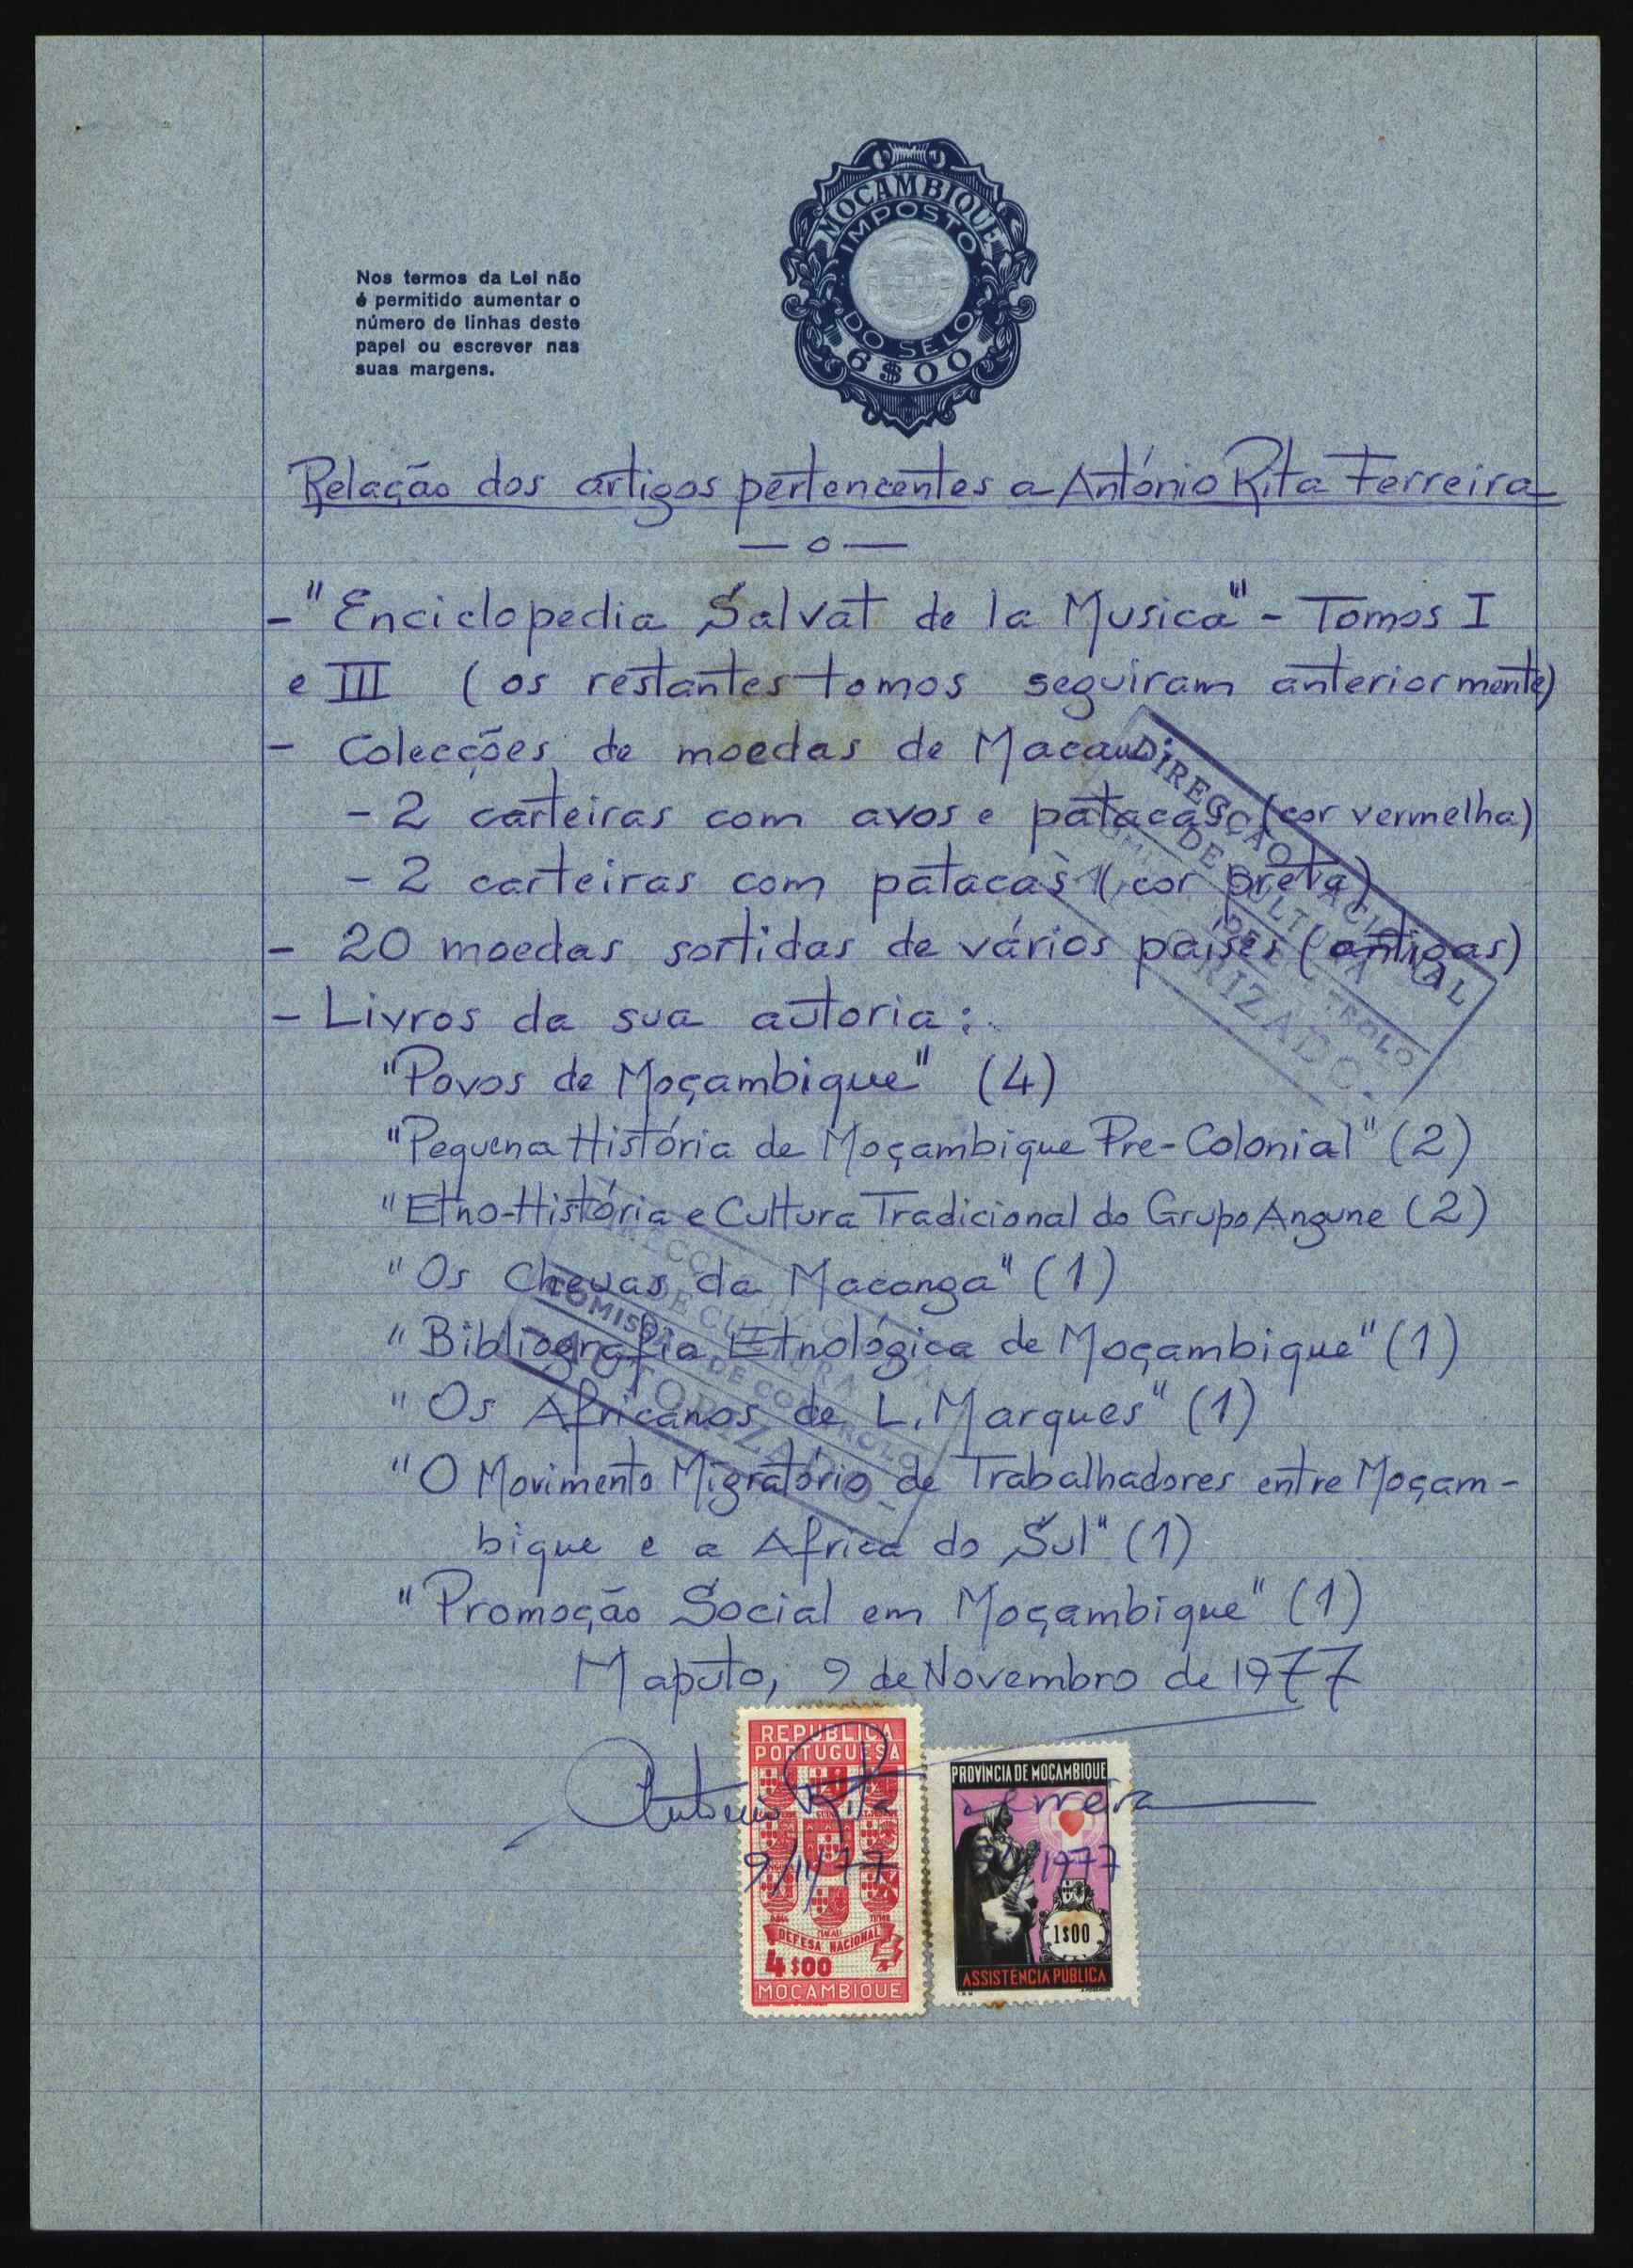 MOÇAMBIQUE
IMPOSTO
DO SELO
6$00
Nos termos da Lei não
é permitido aumentar o
número de linhas deste
papel ou escrever nas
suas margens.
Relação dos artigos pertencentes a António Rita Ferreira
— o —
- "Enciclopedia Salvat de la Musica" - Tomos I
e III (os restantes tomos seguiram anteriormente)
- Colecções de moedas de Macau:
- 2 carteiras com avos e patacas (cor vermelha)
- 2 carteiras com patacas (cor preta)
- 20 moedas sortidas de vários países (antigas)
- Livros da sua autoria:
"Povos de Moçambique" (4)
"Pequena História de Moçambique Pre-Colonial" (2)
"Etno-História e Cultura Tradicional do Grupo Angune (2)
"Os Chevas da Macanga" (1)
"Bibliografia Etnológica de Moçambique" (1)
"Os Africanos de L. Marques" (1)
"O Movimento Migratório de Trabalhadores entre Moçam-
bique e a Africa do Sul" (1)
"Promoção Social em Moçambique" (1)
Maputo, 9 de Novembro de 1977
António Rita Ferreira
9/11/77
1977
DIRECÇÃO NACIONAL
DE CULTURA
COMISSÃO DE CONTROLO
AUTORIZADO
REPUBLICA
PORTUGUESA
DEFESA NACIONAL
4$00
MOÇAMBIQUE
PROVINCIA DE MOÇAMBIQUE
1$00
ASSISTÊNCIA PÚBLICA